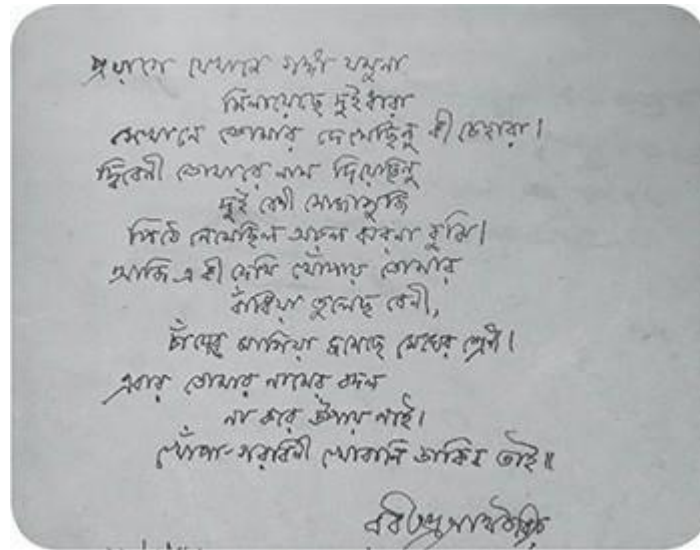 প্রয়াগে যেখানে গঙ্গা যমুনা
মিলায়েছে দুইধারা
সেখানে তোমার দেখেছিনু কী চেহারা।
দ্বিবেণী তোমারে নাম দিয়েছিনু
দুই বেণী সোজাসুজি
পিঠে নেমেছিল অচল ঝরনা বুঝি।
আজি এ কী দেখি খোঁপায় তোমার
বাঁধিয়া তুলেছ বেণী,
চাঁদেরে মাগিয়া জমেছে মেঘের শ্রেণী।
এবার তোমার নামের বদল
না করে উপায় নাই।
খোঁপা-গরবিনী খোবানি ডাকিব তাই॥
রবীন্দ্রনাথ ঠাকুর